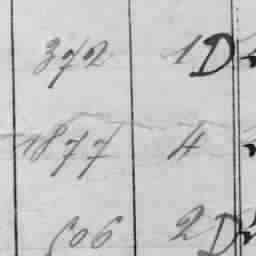 372 1 D
1877 4
606 2 D